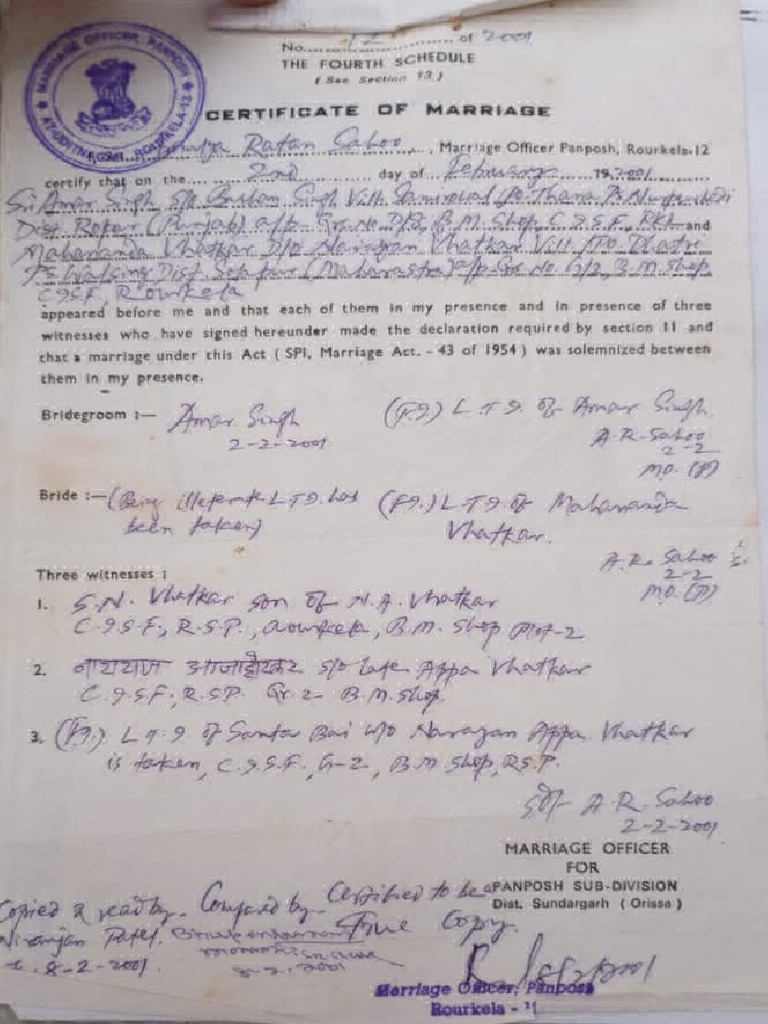 MARRIAGE OFFICER, PANPOSH
ROURKELA-12
No. 12 of 2001
THE FOURTH SCHEDULE
( See Section 13 )
CERTIFICATE OF MARRIAGE
Ratan Sahoo, Marriage Officer Panposh, Rourkela-12
certify that on the 2nd day of February 19,2001
Sri Amar Singh S/o Singh Vill. /Po. Thana Ps.
Dist Ropar (Punjab) a/p- Qrs. No. D/3, B.M. Shop, C.I.S.F, RKL and
Mahananda Vhatkar D/o Narayan Vhatkar Vill /Po.
Ps. Dist. (Maharastra) a/p- Qr. No. G/2, B.M. Shop
C.I.S.F, Rourkela
appeared before me and that each of them in my presence and in presence of three
witnesses who have signed hereunder made the declaration required by section 11 and
that a marriage under this Act ( SPl, Marriage Act. - 43 of 1954 ) was solemnized between
them in my presence.
Bridegroom :— Amar Singh (F.I.) L.T.I. of Amar Singh.
2-2-2001 A.R. Sahoo
2-2
M.O. (P)
Bride :— (Being illeterate L.T.I. has (F.I.) L.T.I. of Mahananda
been taken) Vhatkar.
A.R. Sahoo
2-2
M.O. (P)
Three witnesses :
1. S.N. Vhatkar son of N.A. Vhatkar
C.I.S.F, R.S.P., Rourkela, B.M. Shop Plot-2
2. नारायण S/o late Appa Vhatkar
C.I.S.F, R.S.P. Qr. 2- B.M. Shop.
3. (F.I.) L.T.I. of Santa Bai W/o Narayan Appa Vhatkar
is taken, C.I.S.F., G-2, B.M. Shop, R.S.P.
Sd/- A.R. Sahoo
2-2-2001
MARRIAGE OFFICER
FOR
PANPOSH SUB-DIVISION
Dist. Sundargarh ( Orissa )
Copied & read by. Compared by. Certified to be a
Niranjan Patel. True Copy.
8-2-2001. 8-2-2001
Marriage Officer, Panposh
Rourkela - 12